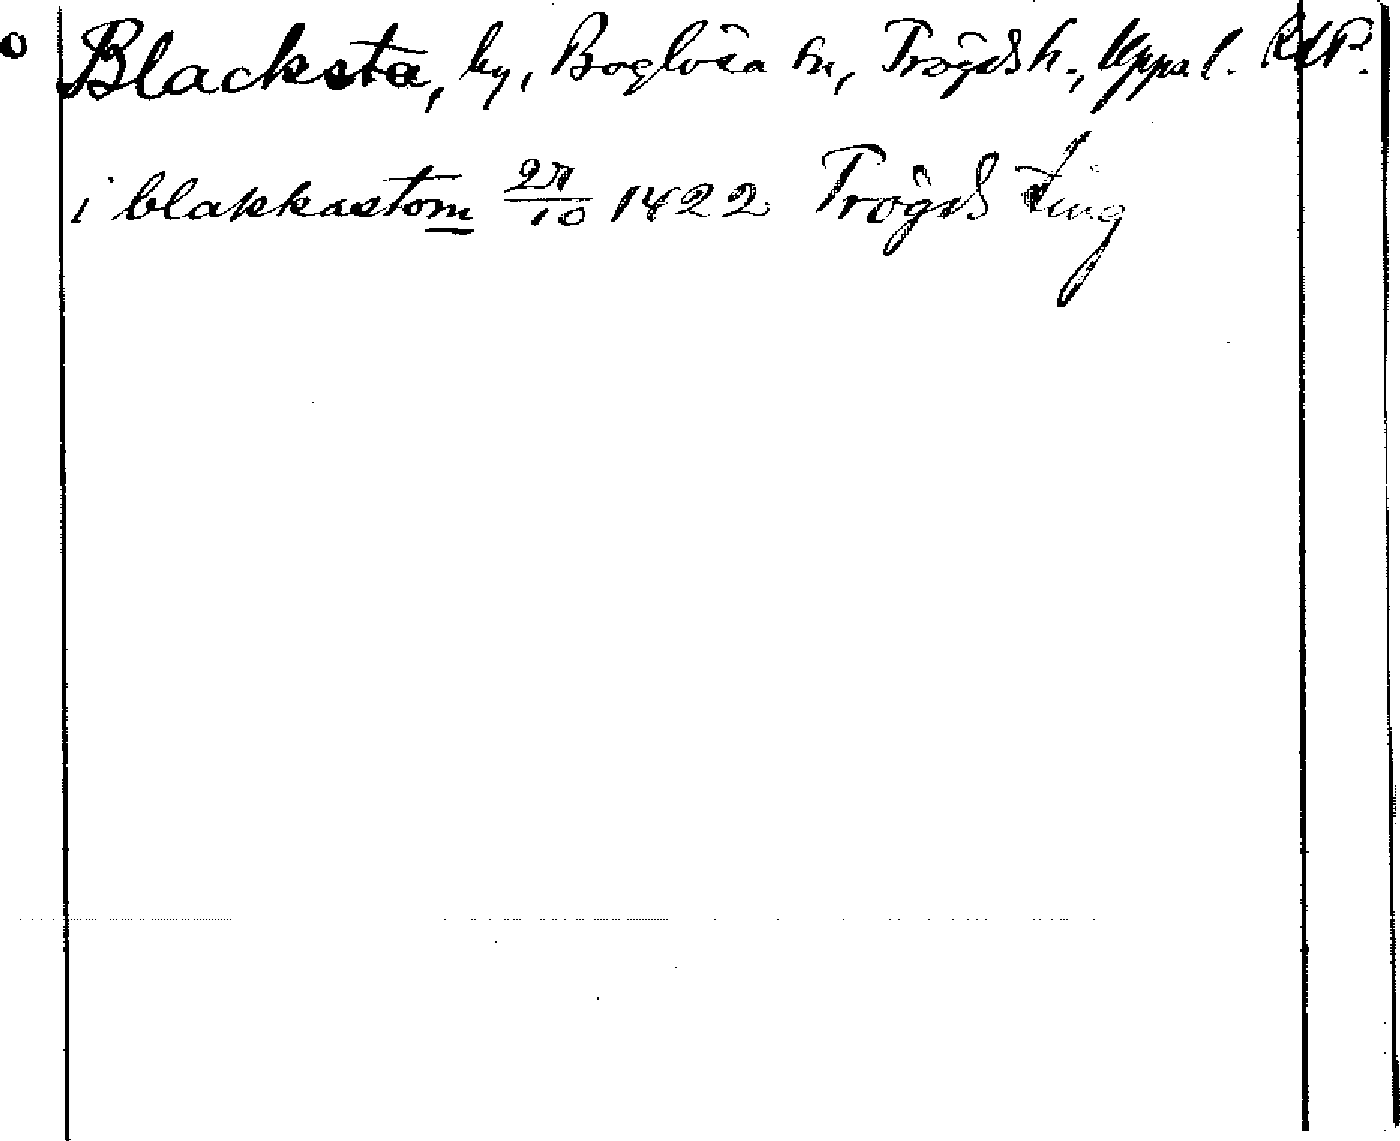 Blacksta, by, Boglösa sn, Trögds h., Upps l. RAP.
i blakkastom 27/10 1422 Trögds ting